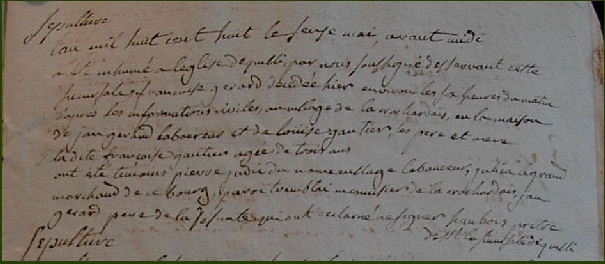 Sepulture
L'an mil huit cent huit le seize mai avant midi
a été inhumé a l'eglise depuilli, par nous soussigné desservant cette
francoise gerard decedée hier environ les six heures du matin
d'apres les informations civiles, au village de la rochardais, en la maison
de jan gerard laboureur et de louise gautier, les pere et mere
la dite francoise gautier agée de trois ans
ont été temoins pierre judic du meme village laboureur, julien legrand
marchand de ce bourg, tremblai menuisier de la rochardais, jan
gerard pere de la defunte qui ont declaré ne signer
Sepulture